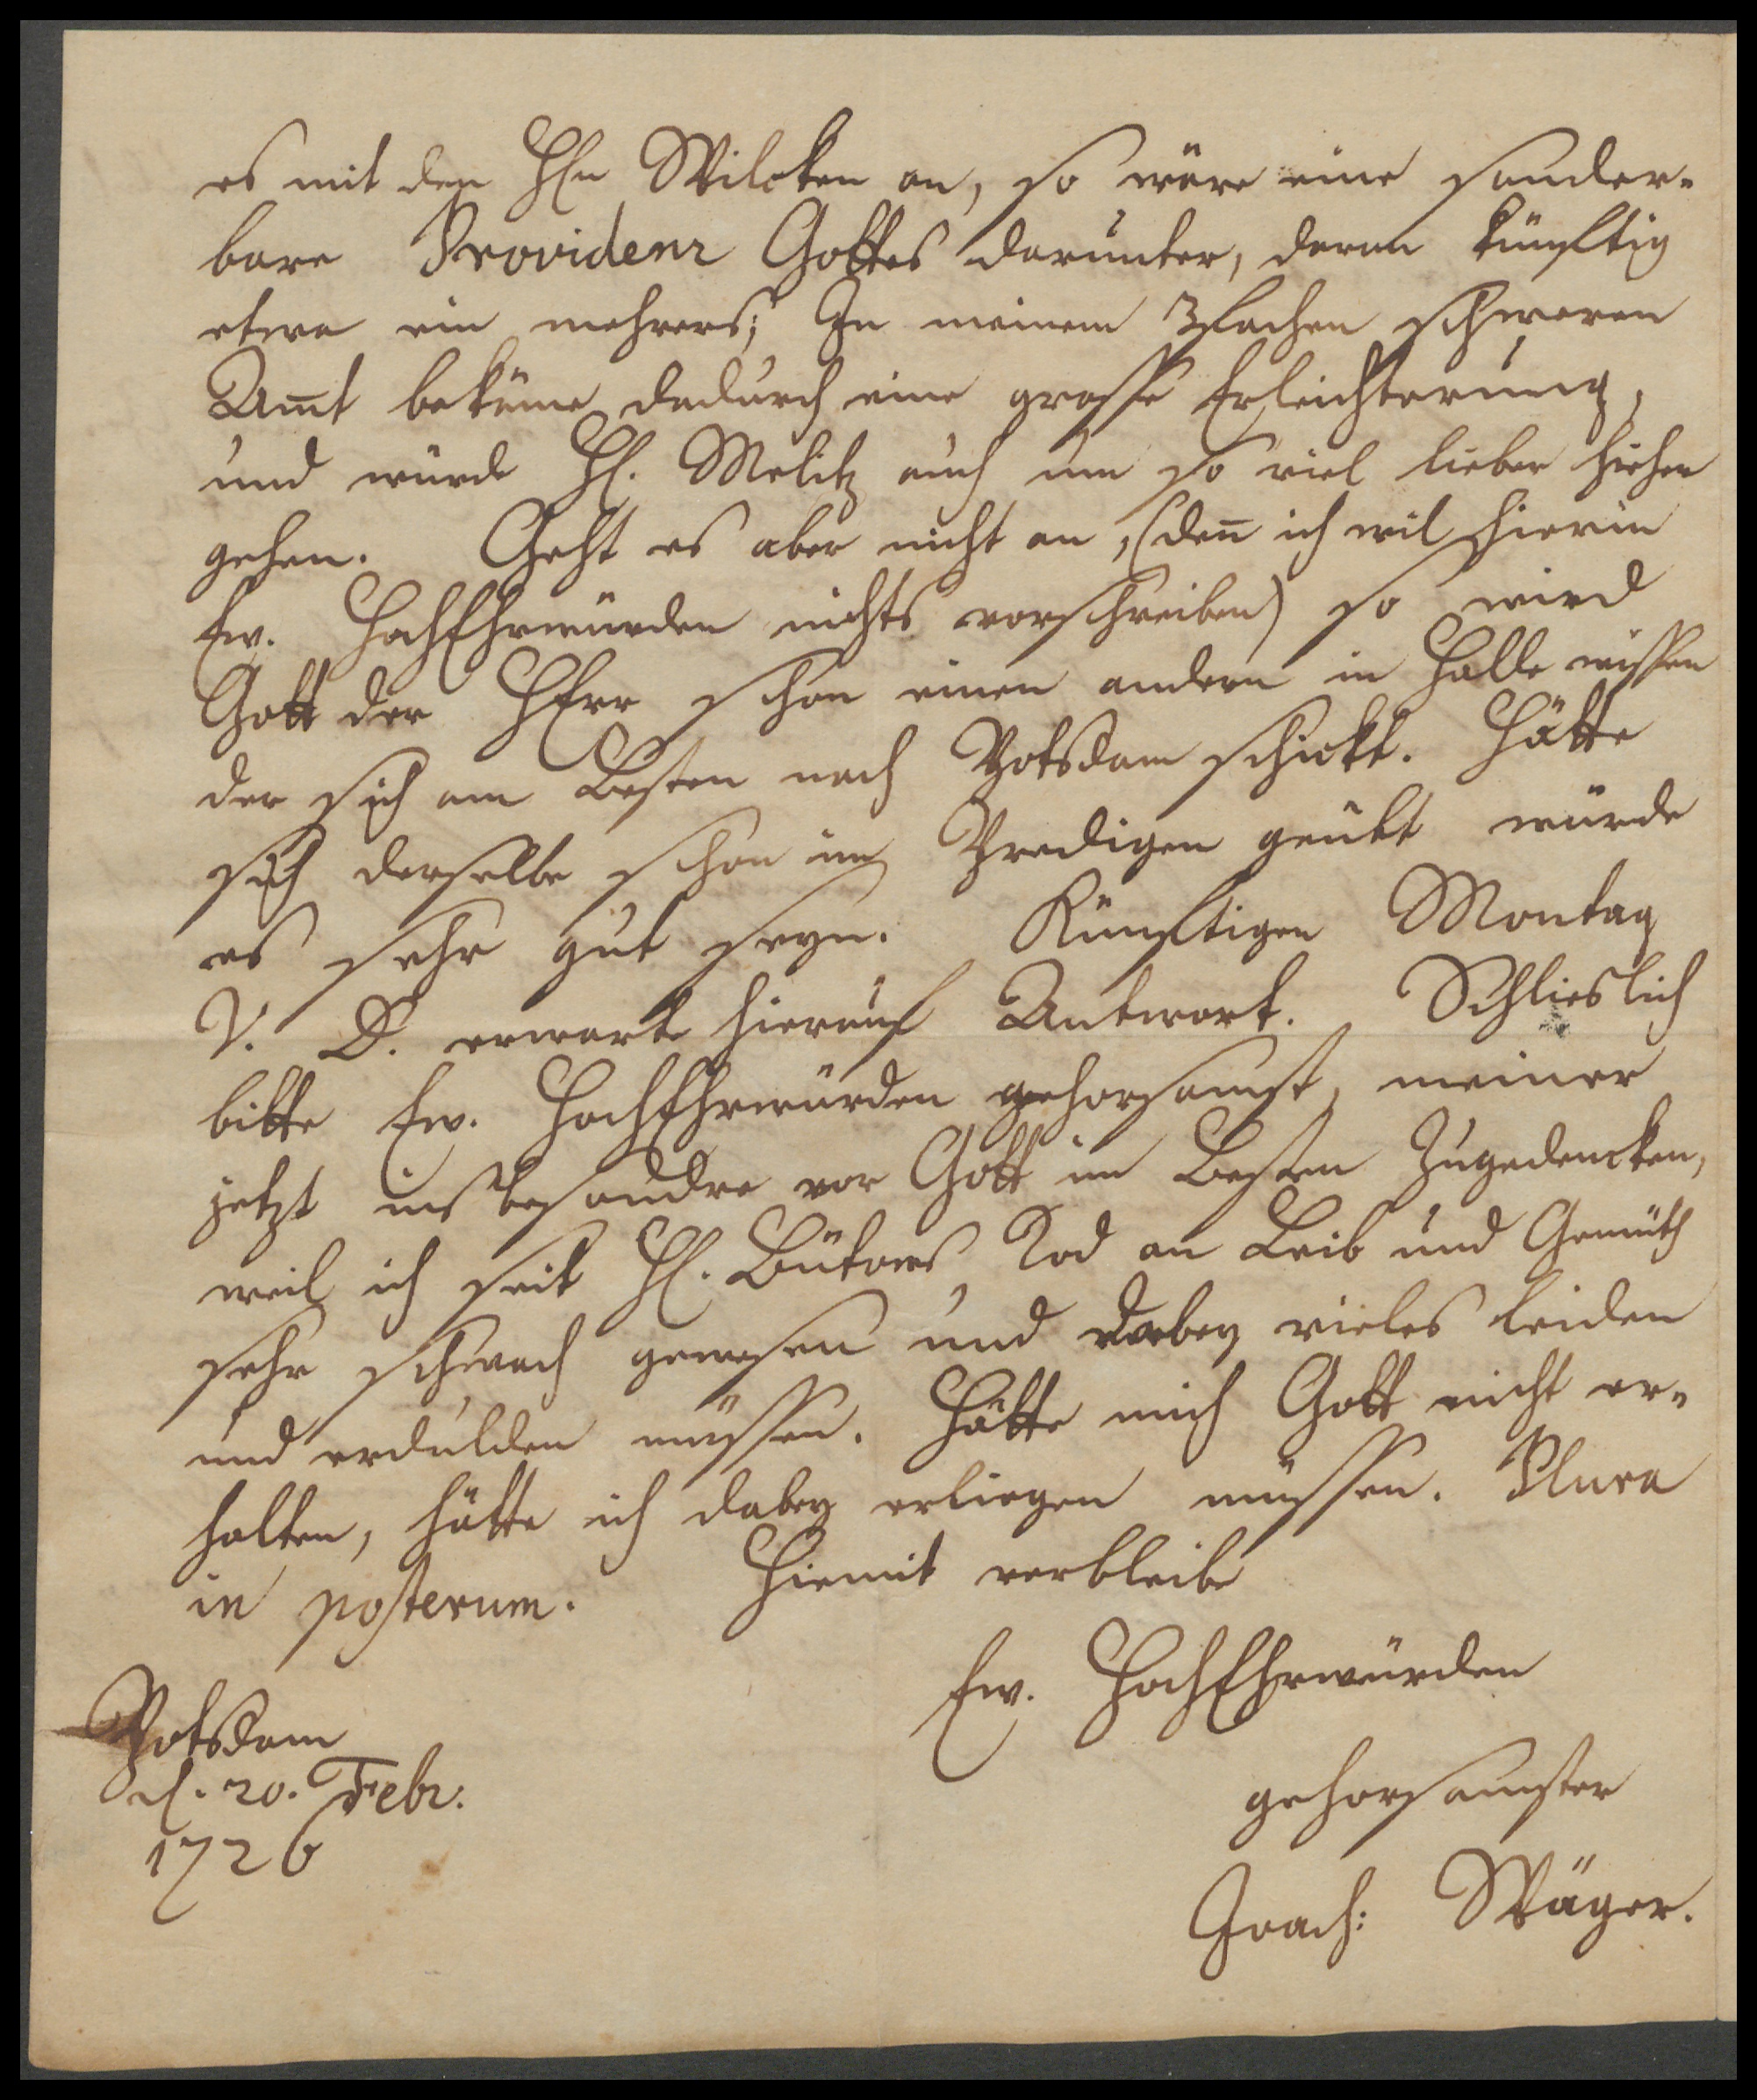 es mit den HEn Wilcken an, so wäre eine sonder-
bare Providenz Gottes darunter, deren künfftig
etwa ein mehrers; In meinem 3fachen schweren
Amt bekäme dadurch eine grosse Erleichterung,
und würde H. Melitz auch um so viel lieber hieher
gehen. Geht es aber nicht an, (den ich wil hierin
Ew. HochEhrwürden nichts vorschreiben) so wird
Gott der HErr schon einen andern in Halle wissen
der sich am Besten nach Potsdam schickt. Hätte
sich derselbe schon im Predigen geübt würde
es sehr gut seyn. Künfftigen Montag
V. D. erwarte hierauf Antwort. Schlieslich
bitte Ew. HochEhrwürden gehorsamst, meiner
jetzt insbesondre vor Gott im Besten zugedencken,
weil ich seit H. Bütows Tod an Leib und Gemüth
sehr schwach gewesen und dabey vieles leiden
und erdulden müssen. Hätte mich Gott nicht er-
halten, hätte ich dabey erliegen müssen. Plura
in posterum. Hiemit verbleibe
Ew. HochEhrwürden
Potsdam
d. 20. Febr.
1726
gehorsamster
Joach: Wäger.